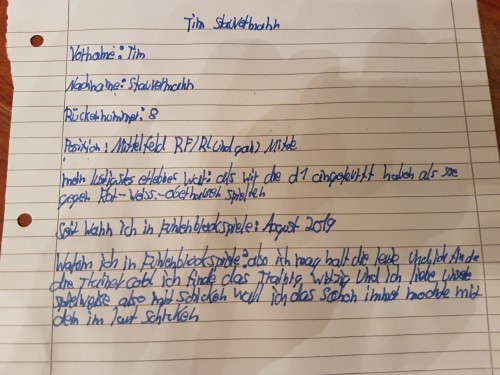 Tim Stauvermann
Vorname: Tim
Nachname: Stauvermann
Rückennummer: 8
Position: Mittelfeld RF/RL und ganz Mitte
mein lustigstes erlebnis war: als wir die d1 angefeuert haben als sie
gegen Rot-Weiss-oberhausen spielten
Seit wann ich in Fühlenbleckspiele: August 2019
Warum ich in Fühlenbleckspiele? also ich mag halt die leute und ich finde
die Trainer cool ich finde das Trainig witzig und ich liebe unsere
spielweise also mit schicken weil ich das schon immer mochte mit
dem im lauf schicken